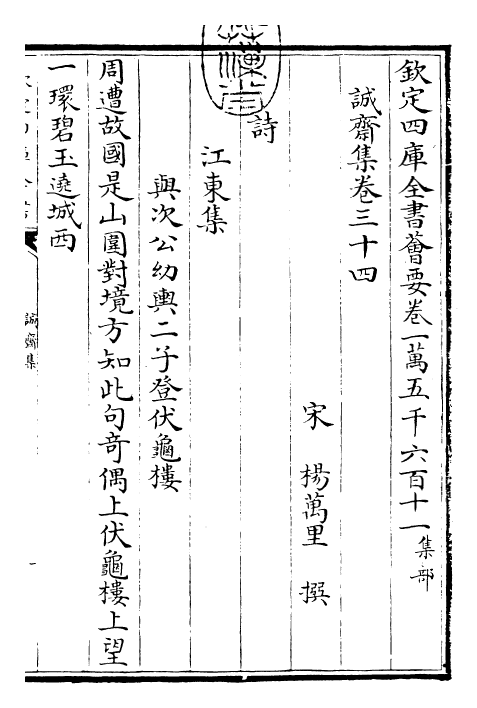 欽定四庫全書薈要卷一萬五千六百十一集部
誠齋集卷三十四
宋 楊萬里 撰
詩
江東集
與次公幼輿二子登伏龜樓
周遭故國是山圍對境方知此句奇偶上伏龜樓上望
一環碧玉遶城西
誠齋集
一